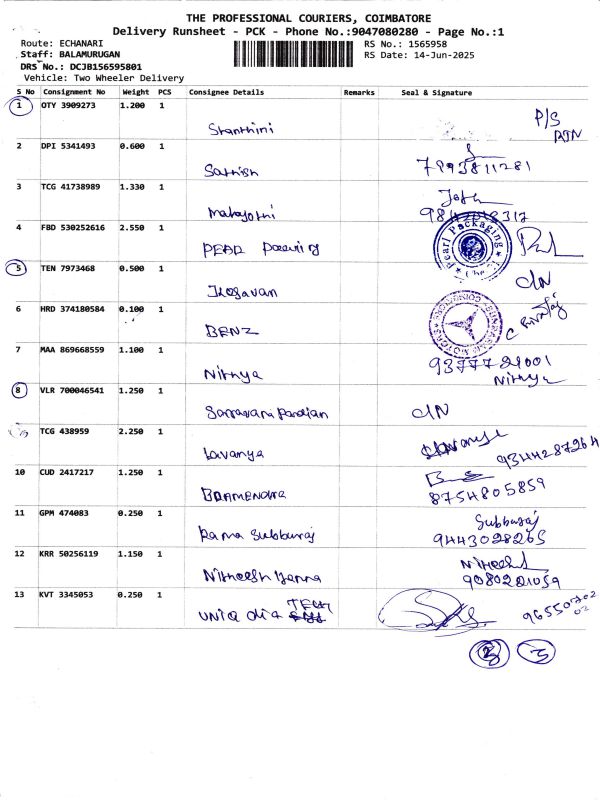 THE PROFESSIONAL COURIERS, COIMBATORE
Delivery Runsheet - PCK - Phone No.:9047080280 - Page No.:1
Route: ECHANARI
RS No.: 1565958
Staff: BALAMURUGAN
RS Date: 14-Jun-2025
DRS No.: DCJB156595801
Vehicle: Two Wheeler Delivery
S No Consignment No Weight PCS Consignee Details Remarks Seal & Signature
1 OTY 3909273 1.200 1
P/S
Shanthini
2 DPI 5341493 0.600 1
Sathish 7993811281
3 TCG 41738989 1.330 1
4 FBD 530252616 2.550 1
Pearl Packaging
5 TEN 7973468 0.500 1
C/N
6 HRD 374180584 0.100 1
BENZ
7 MAA 869668559 1.100 1
Nithya
Nithya
8 VLR 700046541 1.250 1
C/N
TCG 438959 2.250 1
Lavanya 9344287264
10 CUD 2417217 1.250 1
8754805859
11 GPM 474083 0.250 1
Subburaj
Rama Subburaj 9443028265
12 KRR 50256119 1.150 1
9080221059
13 KVT 3345053 0.250 1
TECH
UNIQ dia
3